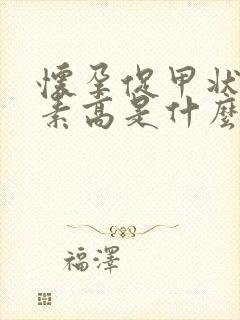 懷孕促甲狀
素高是什麼
福澤